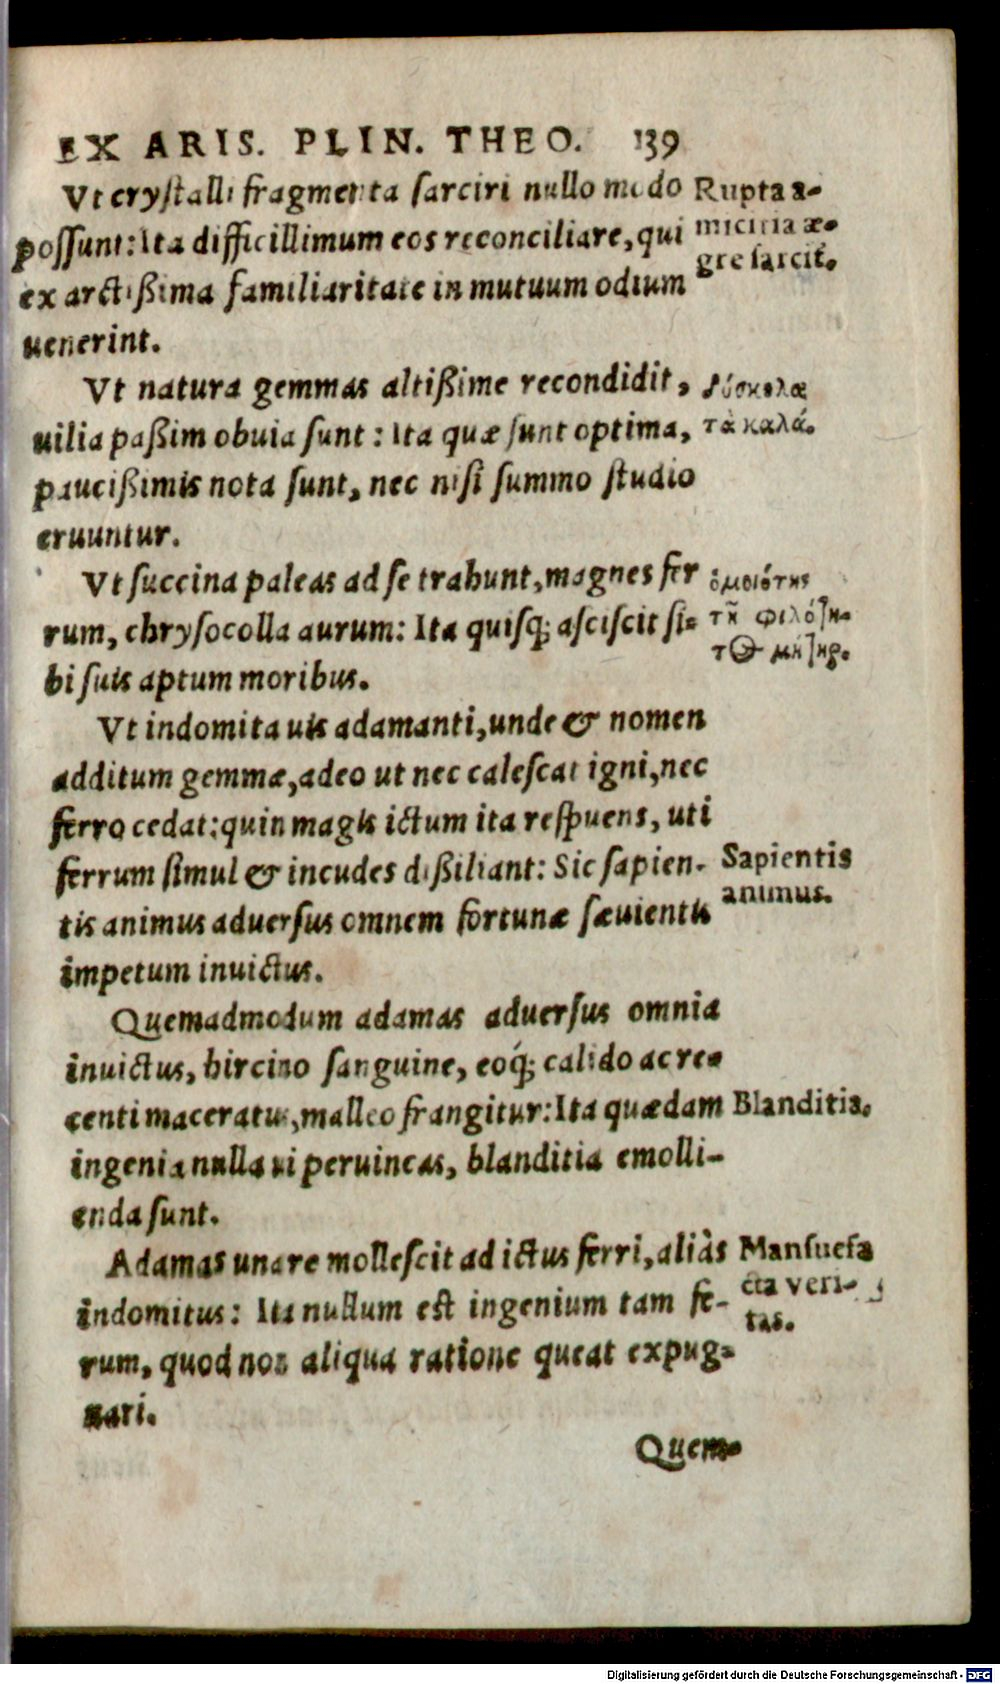 EX ARIS. PLIN. THEO. 139
Vt crystalli fragmenta sarciri nullo modo
possunt: Ita difficillimum eos reconciliare, qui
ex arctißima familiaritate in mutuum odium
uenerint.
Rupta a-
micitia æ-
gre sarcit.
Vt natura gemmas altißime recondidit,
uilia paßim obuia sunt: Ita quæ sunt optima,
paucißimis nota sunt, nec nisi summo studio
eruuntur.
δύσκολα
τὰ καλά.
Vt succina paleas ad se trahunt, magnes fer
rum, chrysocolla aurum: Ita quisq; asciscit si-
bi suis aptum moribus.
ὁμοιότης
Vt indomita uis adamanti, unde & nomen
additum gemmæ, adeo ut nec calescat igni, nec
ferro cedat: quin magis ictum ita respuens, uti
ferrum simul & incudes dißiliant: Sic sapien-
tis animus aduersus omnem fortunæ sæuientis
impetum inuictus.
Sapientis
animus.
Quemadmodum adamas aduersus omnia
inuictus, hircino sanguine, eoq́; calido ac re-
centi maceratus, malleo frangitur: Ita quædam
ingenia nulla ui peruincas, blanditia emolli-
enda sunt.
Blanditia.
Adamas una re mollescit ad ictus ferri, aliàs
indomitus: Ita nullum est ingenium tam fe-
rum, quod non aliqua ratione queat expug-
nari.
Mansuefa
cta veri-
tas.
Quem-
Digitalisierung gefördert durch die Deutsche Forschungsgemeinschaft - DFG